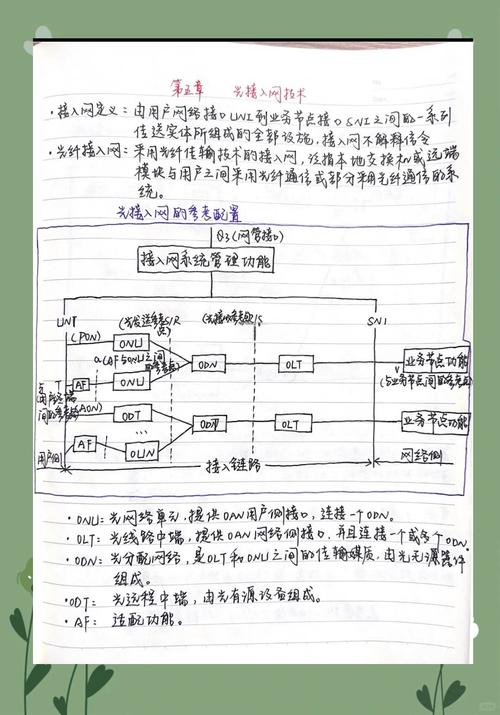 第五章 光接入网技术
·接入网定义：由用户网络接口UNI到业务节点接口SNI之间的一系列
传送实体所组成的全部设施，接入网不解释信令
·光纤接入网：采用光纤传输技术的接入网，泛指本地交换机或远端
模块与用户之间采用光纤通信或部分采用光纤通信的系
统。
光接入网的参考配置
Q3(网管接口)
接入网系统管理功能
UNI
(光发送参考S/R
点)
SNI
(PON)
ONU
a(AF与ONU之间
的参考点)
ODN
OLT
业务节点功能
V
(与业务节点间的参考点)
T
AF
ONU
间的参考点)
(AON)
ODT
ODN
OLT
业务节点功能
...
AF
OUN
用户侧
接入链路
网络侧
·ONU：光网络单元，提供OAN用户侧接口，连接一个ODN。
·OLT：光线路中端，提供OAN网络侧接口，并且连接一个或多个ODN。
·ODN：光分配网络，是OLT和ONU之间的传输媒质，由光无源器件
组成。
·ODT：光远程中端，由光有源设备组成。
·AF：适配功能。